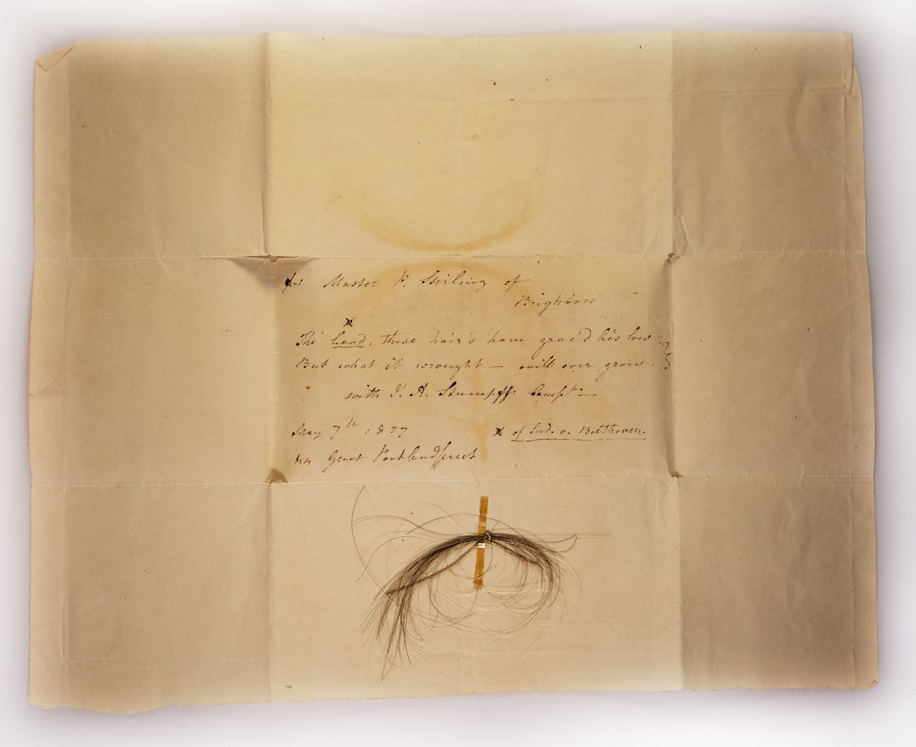 for Master P. Stirling of
Brighton
The head, these hair's have grac'd lies low
But what it wrought — will ever grow.
with J. A. Stumpff Compts
May 7th, 1827
Great Portland street
x of Lud. v. Beethoven.